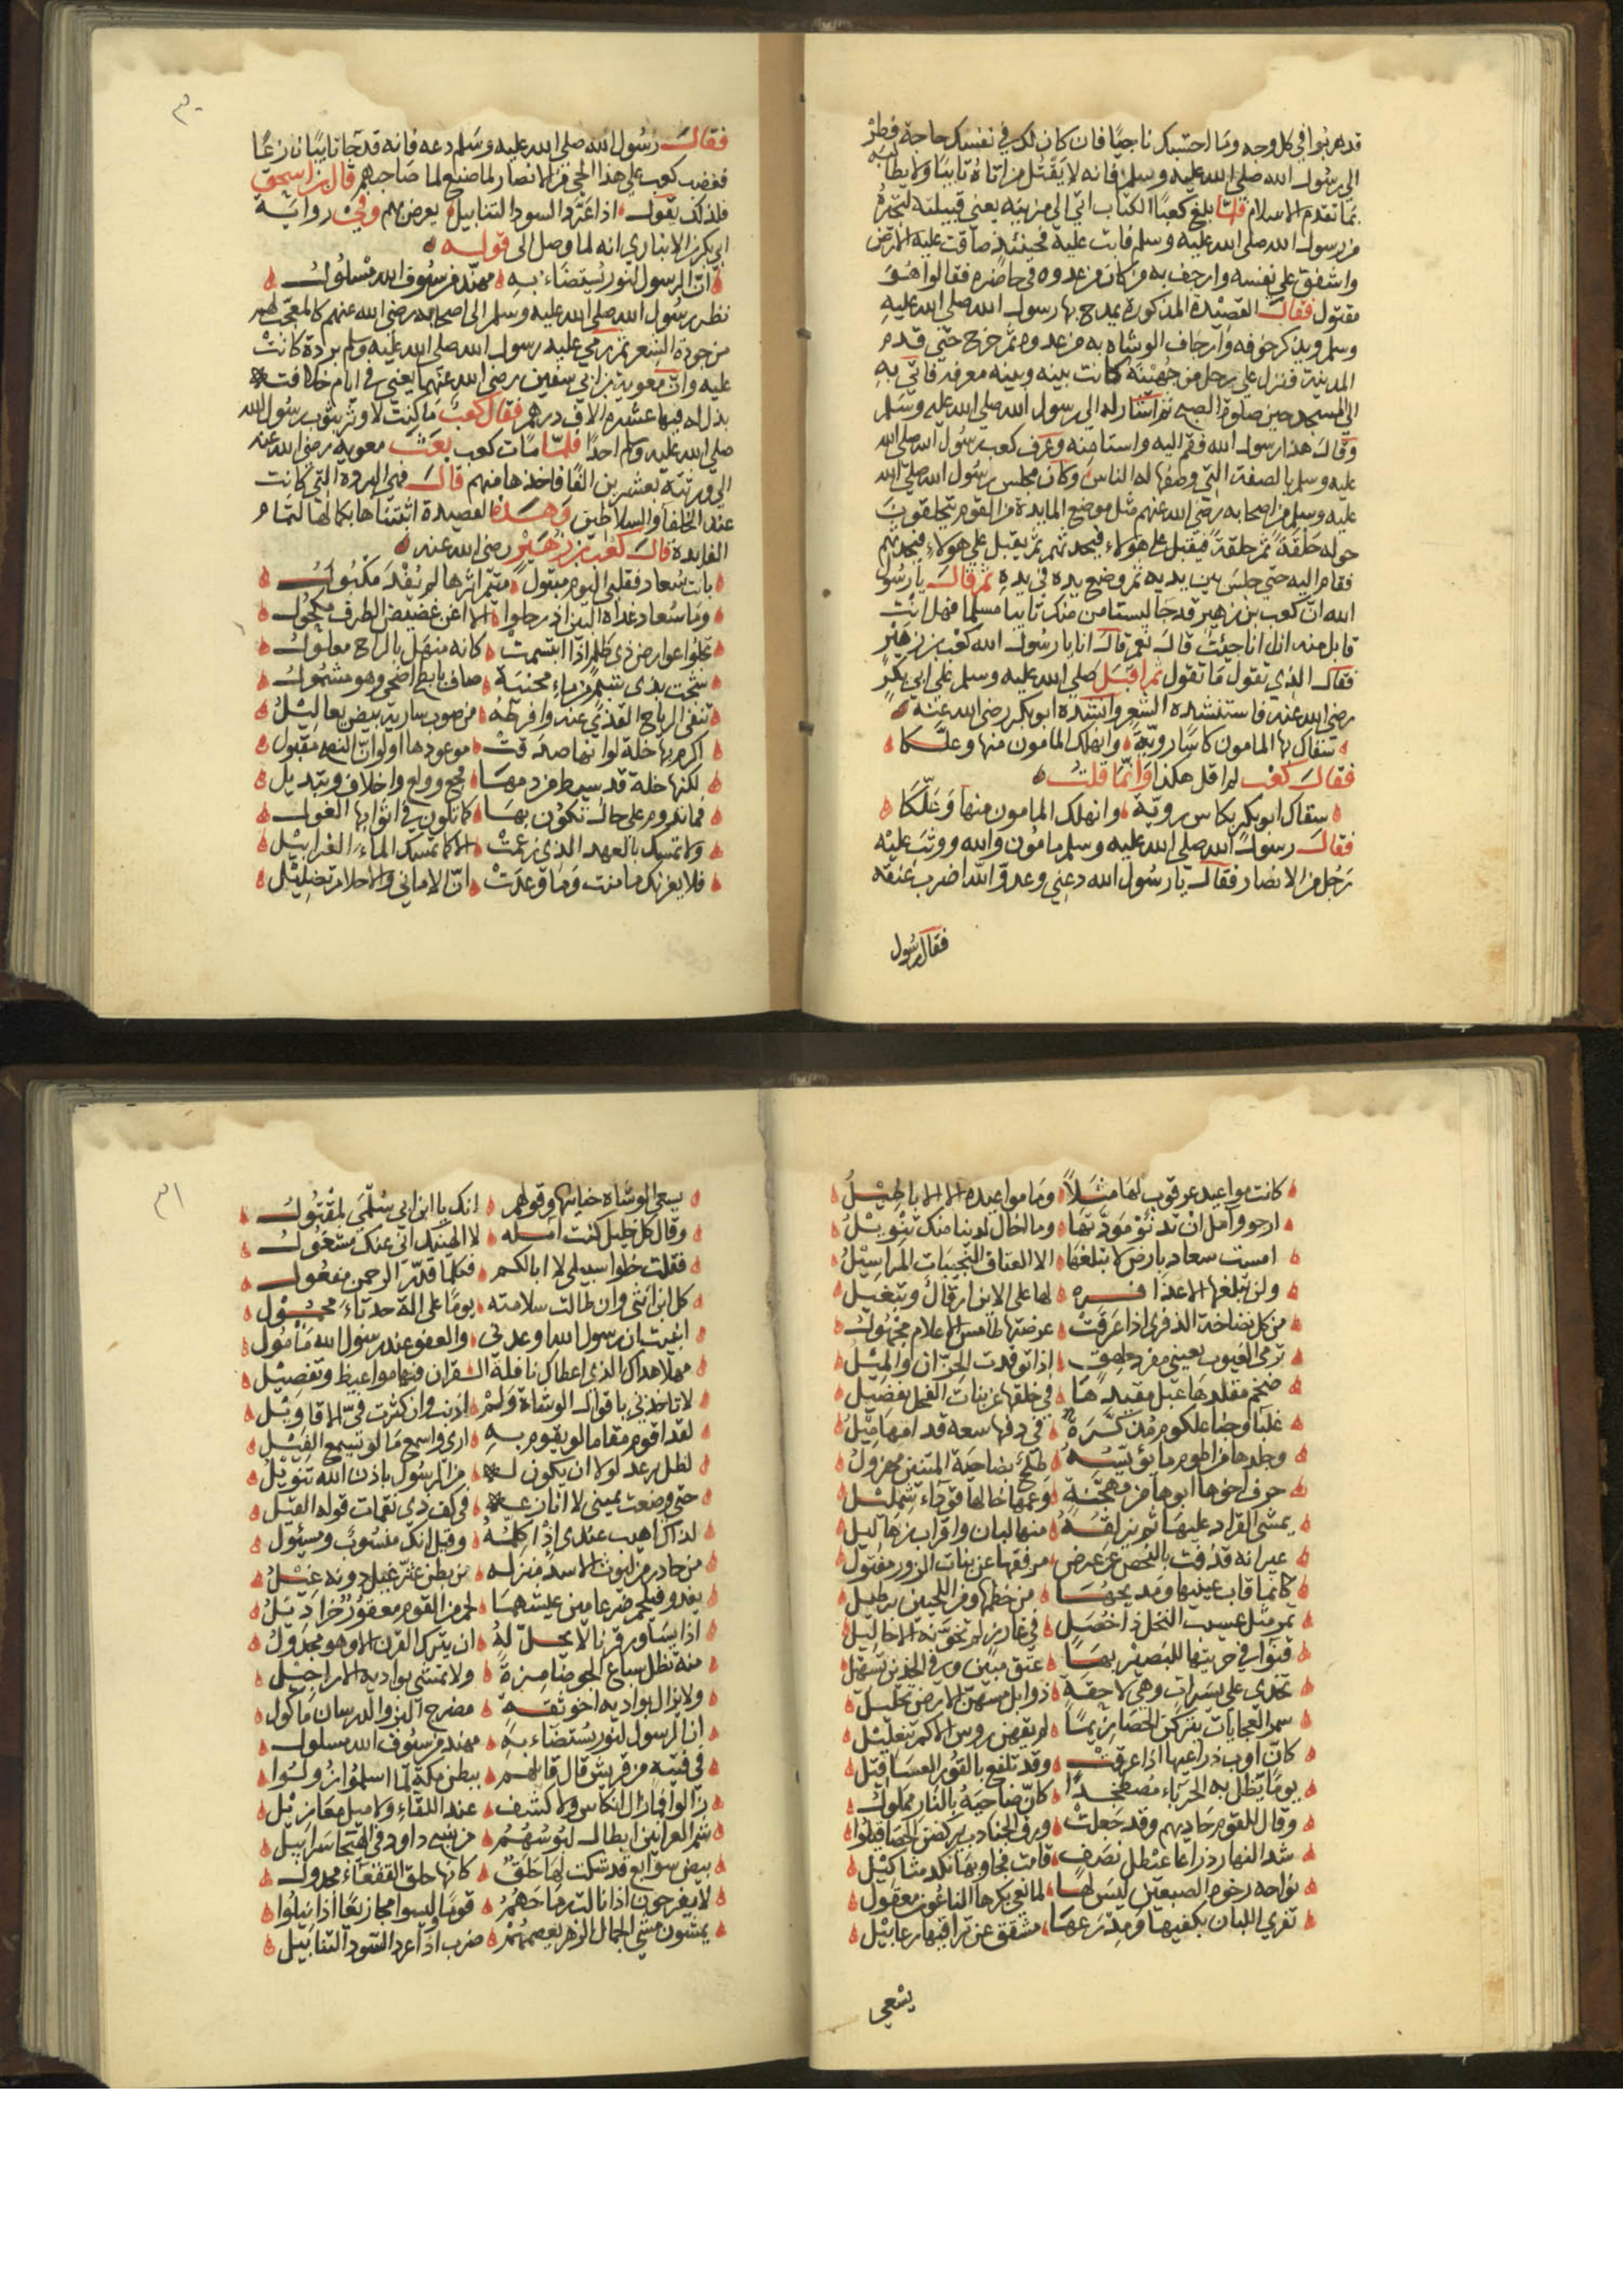 قد هربوا في كل وجه وما احسبك ناجيا فان كان لك في نفسك حاجة فطر
الى رسول الله صلى الله عليه وسلم فانه لا يقتل من اتاه تائبا ولا يطالبه
بما تقدم الاسلام فلما بلغ كعبا الكتاب اتي الى مزينه يعني قبيلته لتجيره
من رسول الله صلى الله عليه وسلم فابت عليه فحينئذ ضاقت عليه الارض
واشفق على نفسه وارجف به من كان من عدوه في حاضره فقالوا هو
مقتول فقال القصيدة المذكورة يمدح بها رسول الله صلى الله عليه
وسلم ويذكر خوفه وارجاف الوشاه به من عدوه ثم خرج حتى قدم
المدينة فنزل على رجل من جهينة كانت بينه وبينه معرفه فاتى به
الى المسجد حين صلوة الصبح ثم اشار له الى رسول الله صلى الله عليه وسلم
وقال هذا رسول الله فقم اليه واستامنه وعرف كعب رسول الله صلى الله
عليه وسلم بالصفة التي وصفها له الناس وكان مجلس رسول الله صلى الله
عليه وسلم من اصحابه رضى الله عنهم مثل موضع المايدة من القوم يتحلقون
حوله حلقة ثم حلقة فيقبل على هولاء فيحدثهم ثم يقبل على هولاء فيحدثهم
فقام اليه حتى جلس بين يديه ثم وضع يده في يده ثم قال يا رسول
الله ان كعب بن زهير قد جا ليستامن منك تايبا مسلما فهل انت
قابل منه ان انا جيئت قال نعم قال انا يا رسول الله كعب بن زهير
فقال الذي يقول ما تقول ثم اقبل صلى الله عليه وسلم على ابى بكر
رضى الله عنه فاستنشده الشعر وانشده ابو بكر رضى الله عنه
سقاك بها المامون كاسا روية وانهلك المامون منها وعلكا
فقال كعب لم اقل هكذا وانما قلت
سقاك ابو بكر بكاس روية وانهلك المامون منها وعلكا
فقال رسول الله صلى الله عليه وسلم مامون والله ووثب عليه
رجل من الانصار فقال يا رسول الله دعني وعدو الله اضرب عنقه
فقال رسول
٣٠
فقال رسول الله صلى الله عليه وسلم دعه فانه قد جا تايبا نازعا
فغضب كعب على هذا الحى من الانصار لما صنع لما صاحبهم قال بن اسحق
فلذلك يقول اذا عرد السود التنابيل يعرض بهم وفي رواية
ابى بكر بن الانبارى انه لما وصل الى قوله
ان الرسول لنور يستضاء به مهند من سيوف الله مسلول
نظر رسول الله صلى الله عليه وسلم الى اصحابه رضى الله عنهم كالمعجب لهم
من جودة الشعر ثم رمى عليه رسول الله صلى الله عليه وسلم بردة كانت
عليه وان معوية بن ابى سفين رضى الله عنهما يعنى في ايام خلافته
بذل له فيها عشرة الاف درهم فقال كعب ما كنت لاوثر بثوب رسول الله
صلى الله عليه وسلم احدا فلما مات كعب بعث معويه رضى الله عنه
الى ورثته بعشرين الفا فاخذها منهم قال فهى البردة التي كانت
عند الخلفا والسلاطين وهذه القصيدة اثبتناها بكمالها لتمام
الفايدة قال كعب بن زهير رضى الله عنه
بانت سعاد فقلبى اليوم متبول متيم اثرها لم يفد مكبول
وما سعاد غداة البين اذ رحلوا الا اغن غضيض الطرف مكحول
تجلوا عوارض ذى ظلم اذا ابتسمت كانه منهل بالراح معلول
شجت بذى شبم من ماء محنية صاف بابطح اضحى وهو مشمول
تنفى الرياح القذى عنه وافرطه من صوب سارية بيض يعاليل
اكرم بها خلة لو انها صدقت موعودها او لو ان النصح مقبول
لكنها خلة قد سيط من دمها فجع وولع واخلاف وتبديل
فما تدوم على حال تكون بها كما تلون في اثوابها الغول
ولا تمسك بالعهد الذى زعمت الا كما تمسك الماء الغرابيل
فلا يغرنك ما منت وما وعدت ان الامانى والاحلام تضليل
كانت مواعيد عرقوب لها مثلا وما مواعيده الا الاباطيل
ارجو وآمل ان تدنو مودتها وما اخال لدينا منك تنويل
امست سعاد بارض لا يبلغها الا العتاق النجيبات المراسيل
ولن يبلغها الا عذافره لها على الاين ارقال وتبغيل
من كل نضاخة الذفرى اذا عرقت عرضتها طامس الاعلام مجهول
ترمى الغيوب بعينى مفرد لهق اذا توقدت الحزان والميل
ضخم مقلدها عبل مقيدها في خلقها عن بنات الفحل تفضيل
غلبا وجنا علكوم مذكرة في دفها سعه قدامها ميل
وجلدها من اطوم ما يؤيسه طلح بضاحية المتنين مهزول
حرف اخوها ابوها من مهجنة وعمها خالها قوداء شمليل
يمشى القراد عليها ثم يزلقه منها لبان واقراب زهاليل
عيرانه قذفت بالنحض عن عرض مرفقها عن بنات الزور مفتول
كانما قاب عينيها ومذبحها من خطمها ومن اللحيين برطيل
تمر مثل عسيب النخل ذا خصل في غارز لم تخونه الاحاليل
قنوا في حريتها للبصير بها عتق مبين وفي الخدين تسهيل
تخدى على يسرات وهي لاحقة ذوابل مسهن الارض تحليل
سمر العجايات يتركن الحصا زيما لم يقهن روس الاكم تنعيل
كان اوب ذراعيها اذا عرقت وقد تلفع بالقور العساقيل
يوما يظل به الحرباء مصطخدا كان ضاحيه بالنار مملول
وقال للقوم حاديهم وقد جعلت ورق الجنادب يركضن الحصا قيلوا
شد النهار ذراعا عيطل نصف قامت فجاوبها نكد مثاكيل
نواحه رخوة الضبعين ليس لها لما نعى بكرها الناعون معقول
تفرى اللبان بكفيها ومدرعها مشقق عن تراقيها رعابيل
يسعى
٣١
يسعى الوشاه جنابيها وقولهم انك يا ابن ابى سلمى لمقتول
وقال كل خليل كنت آمله لا الهينك انى عنك مشغول
فقلت خلوا سبيلى لا ابا لكم فكلما قدر الرحمن مفعول
كل ابن انثى وان طالت سلامته يوما على آلة حدباء محمول
انبئت ان رسول الله اوعدنى والعفو عند رسول الله مامول
مهلا هداك الذى اعطاك نافلة القران فيها مواعيظ وتفصيل
لا تاخذنى باقوال الوشاة ولم اذنب وان كثرت في الاقاويل
لقد اقوم مقاما لو يقوم به ارى واسمع ما لو يسمع الفيل
لظل يرعد لولا ان يكون له من الرسول باذن الله تنويل
حتى وضعت يمينى لا انازعه في كف ذى نقمات قوله القيل
لذاك اهيب عندى اذ اكلمه وقيل انك منسوب ومسئول
من خادر من ليوث الاسد منزله من بطن عثر غيل دونه غيل
يغدو فيلحم ضرغامين عيشهما لحم من القوم معفور خراديل
اذا يساور قرنا لا يحل له ان يترك القرن الا وهو مجدول
منه تظل سباع الجو ضامزة ولا تمشى بواديه الاراجيل
ولا يزال بواديه اخو ثقة مضرج البز والدرسان ماكول
ان الرسول لنور يستضاء به مهند من سيوف الله مسلول
في فتيه من قريش قال قائلهم ببطن مكة لما اسلموا زولوا
زالوا فما زال انكاس ولا كشف عند اللقاء ولا ميل معازيل
شم العرانين ابطال لبوسهم من نسج داود في الهيجا سرابيل
بيض سوابغ قد شكت لها حلق كانها حلق القفعاء مجدول
لا يفرحون اذا نالت رماحهم قوما وليسوا مجازيعا اذا نيلوا
يمشون مشى الجمال الزهر يعصمهم ضرب اذا عرد السود التنابيل